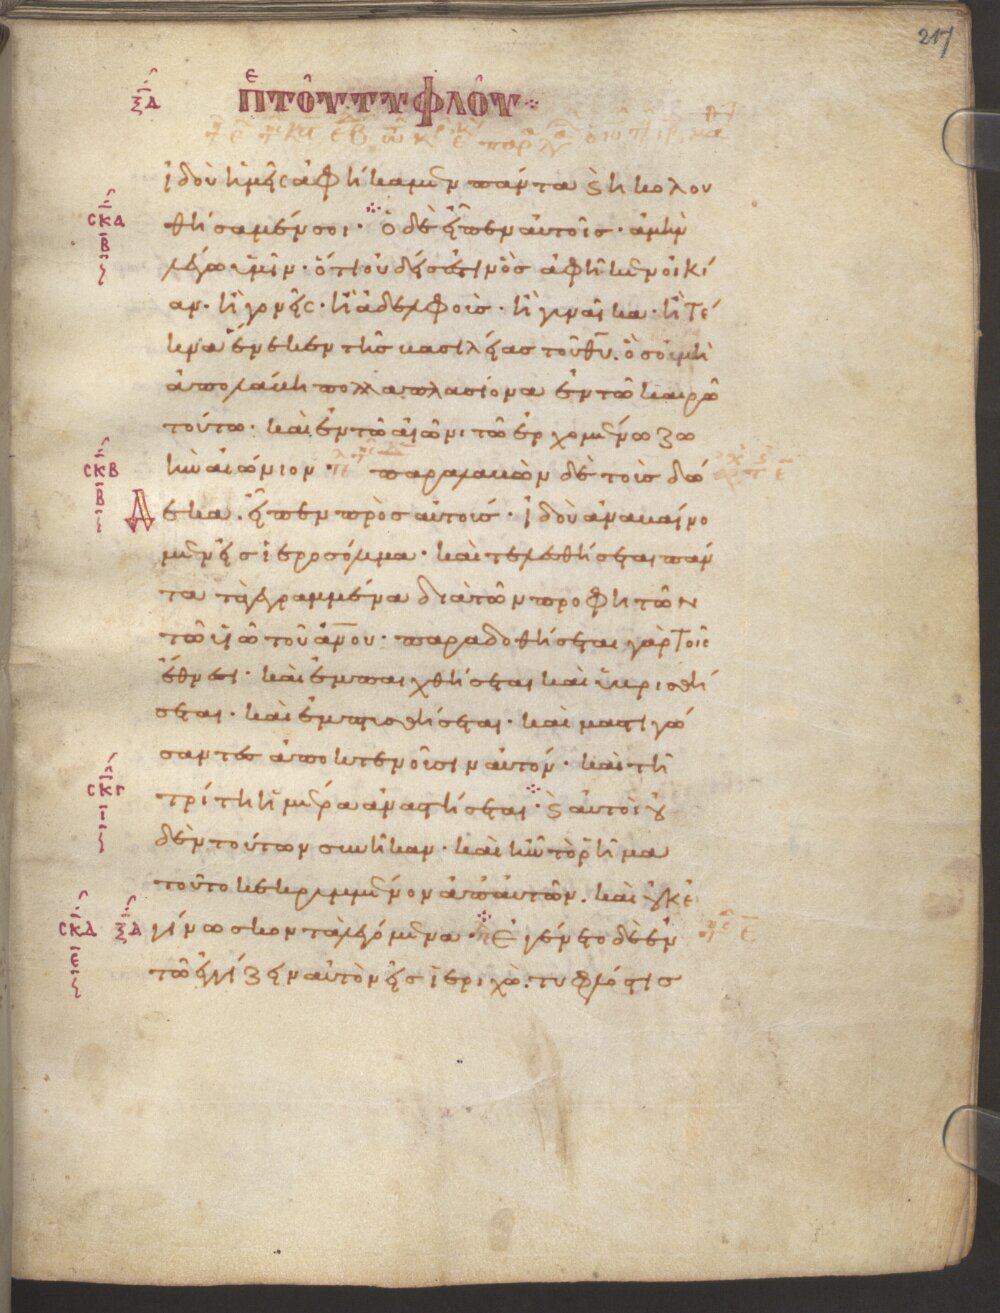 217
ξδ
πε τοῦ τυφλοῦ
ἰδοὺ ἡμεῖς ἀφήκαμεν πάντα ϗ ἠκολου
σκα
β
θήσαμέν σοι · ὁ δὲ εἶπεν αὐτοῖς · ἀμὴν
λέγω ὑμῖν · ὅτι οὐδείς ἐστιν ὃς ἀφῆκεν οἰκί
αν · ἢ γονεῖς · ἢ ἀδελφοὺς · ἢ γυναῖκα · ἢ τέ
κνα ἕνεκεν τῆς βασιλείας τοῦ θυ · ὃς οὐ μὴ
ἀπολάβη πολλαπλασίονα ἐν τῶ καιρῶ
τούτω · καὶ ἐν τῶ αἰῶνι τῶ ἐρχομένω ζω
σκβ
β
ὴν αἰώνιον · παραλαβὼν δὲ τοὺς δώ
δεκα · εἶπεν πρὸς αὐτούς · ἰδοὺ ἀναβαίνο
μεν εἰς ἱεροσόλυμα · καὶ τελεσθήσεται πάν
τα τὰ γεγραμμένα διὰ τῶν προφητῶν
τῶ υἱῶ τοῦ ανου · παραδοθήσεται γὰρ τοῖς
ἔθνεσι · καὶ ἐμπαιχθήσεται καὶ ὑβρισθή
σεται · καὶ ἐμπτυσθήσεται · καὶ μαστιγώ
σαντες ἀποκτενοῦσιν αὐτόν · καὶ τῆ
σκγ
ι
τρίτη ἡμέρα ἀναστήσεται · ϗ αὐτοὶ οὐ
δὲν τούτων συνῆκαν · καὶ ἦν τὸ ῥῆμα
τοῦτο κεκρυμμένον ἀπ' αὐτῶν · καὶ οὐκ ἐ
σκδ ξδ
ε
γίνωσκον τὰ λεγόμενα · Ἐγένετο δὲ ἐν
τῶ ἐγγίζειν αὐτὸν εἰς ἱεριχώ · τυφλός τις